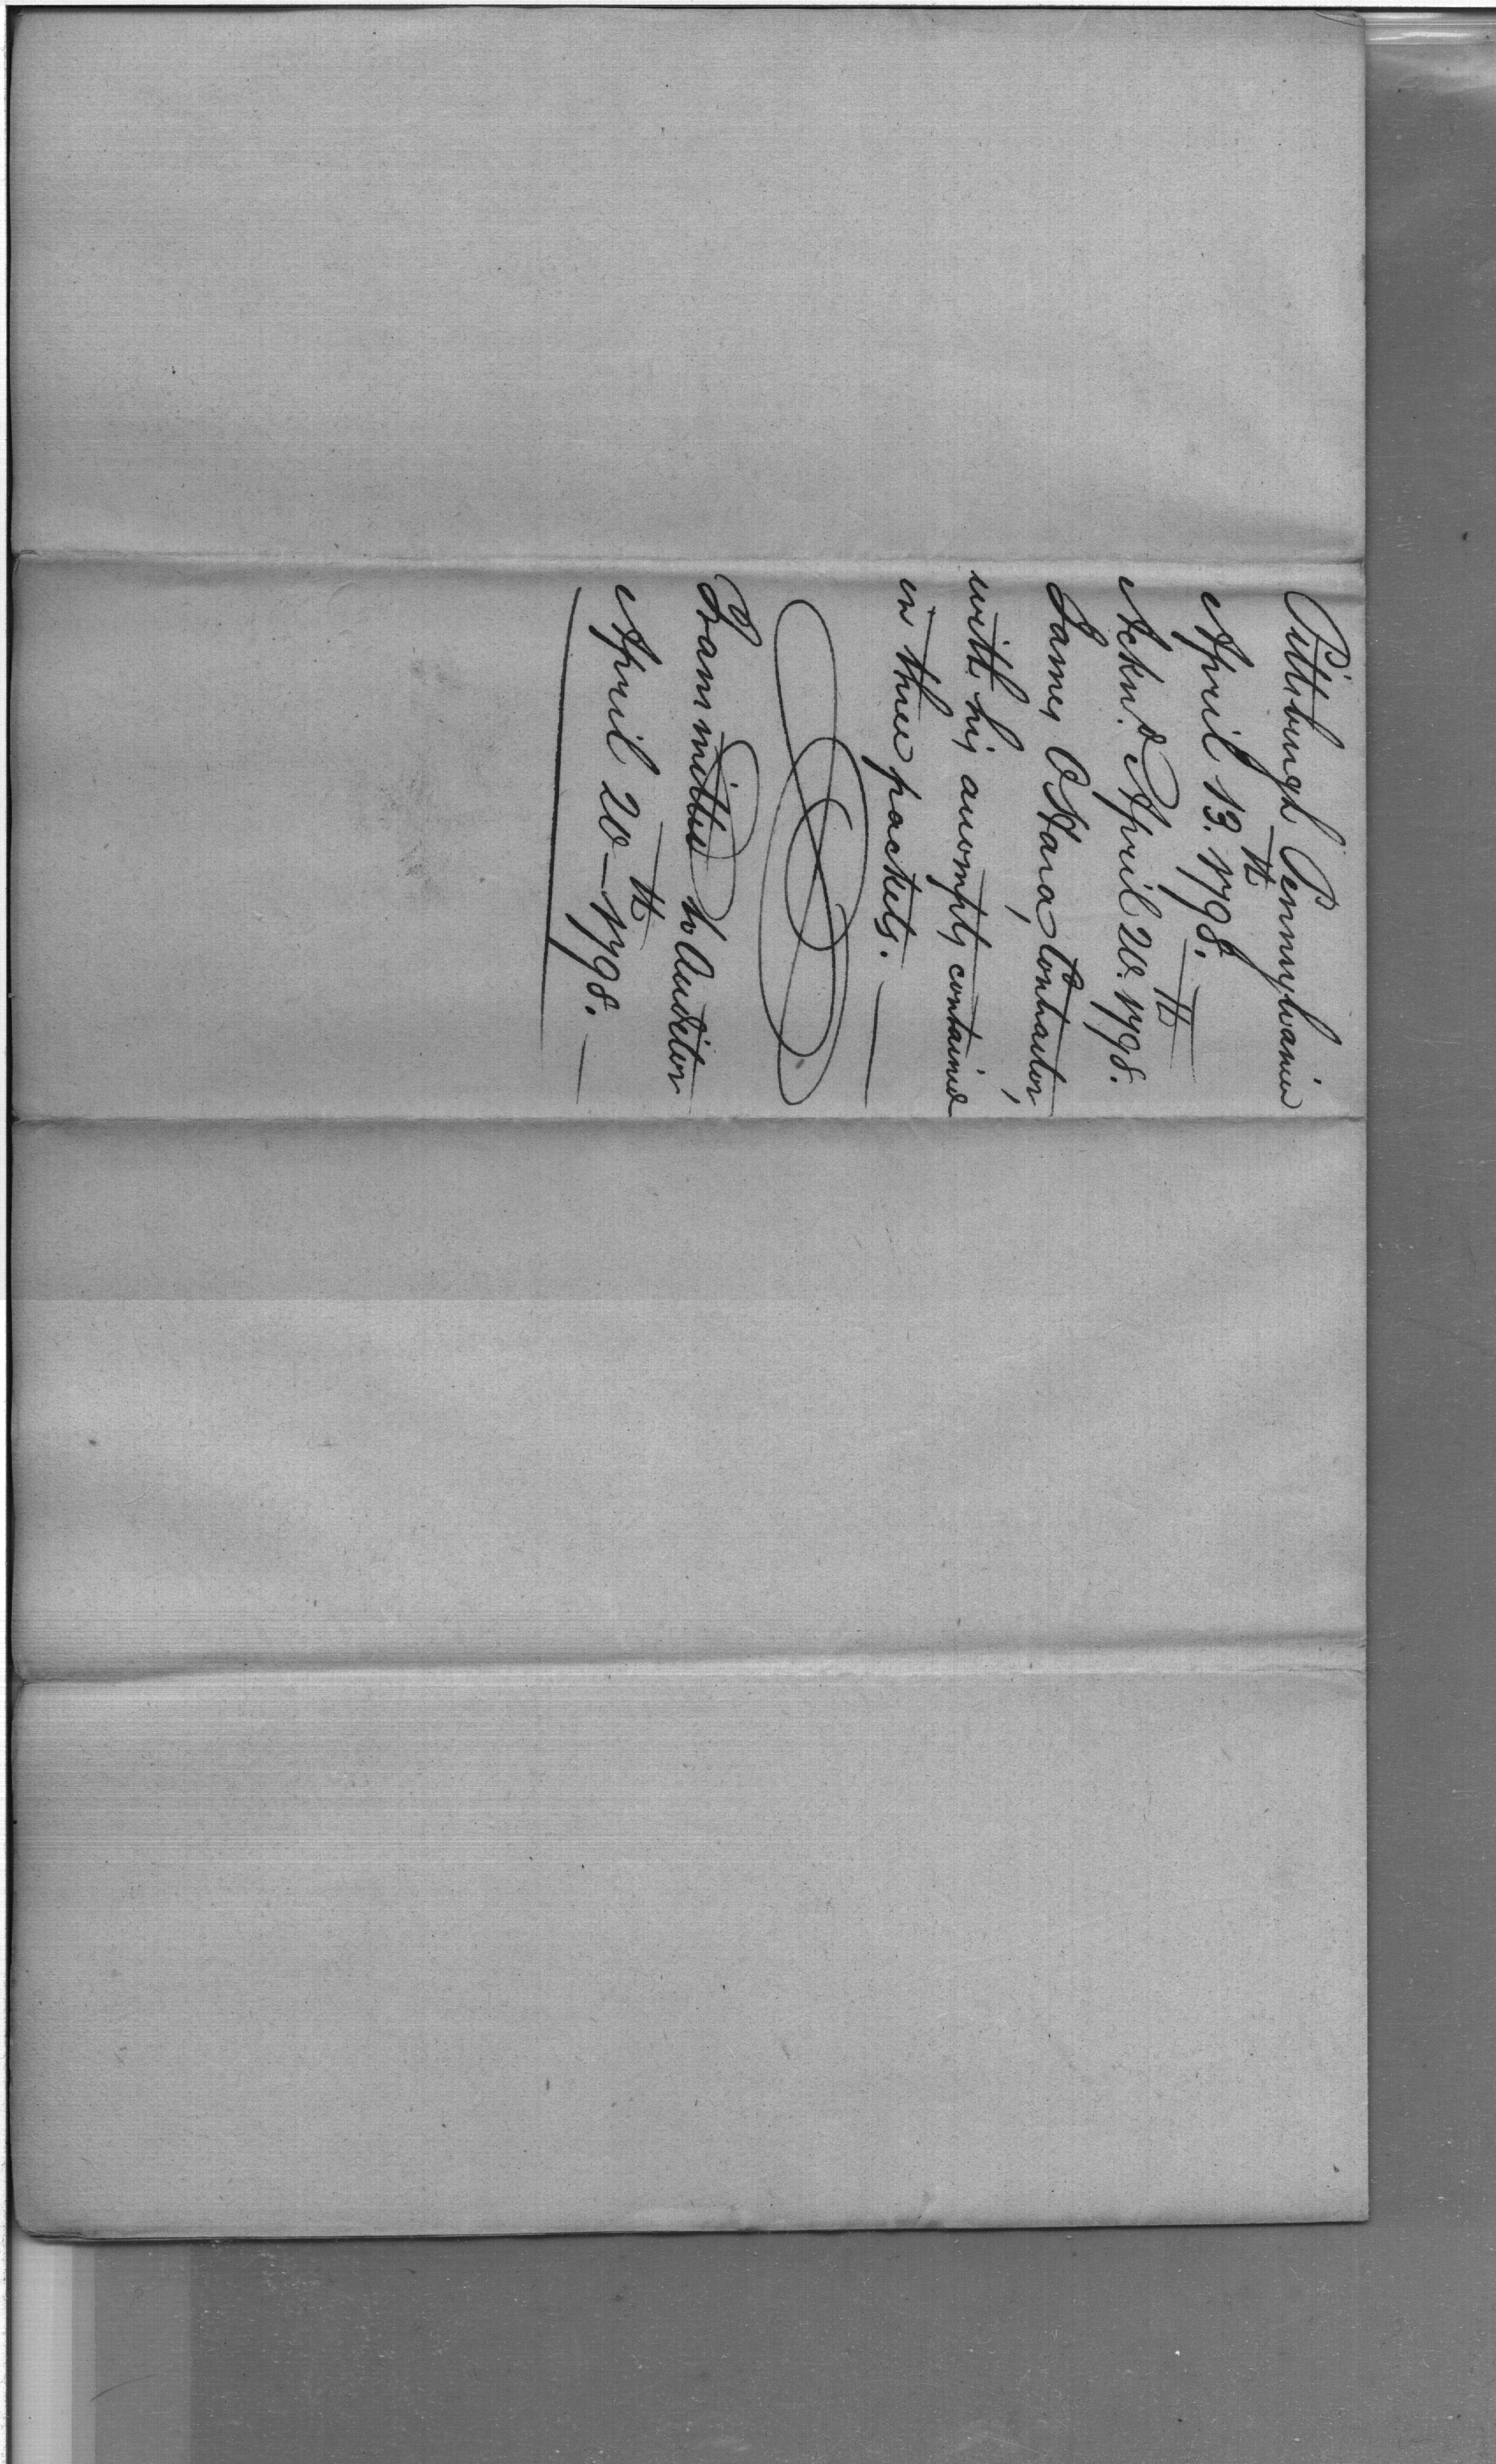 Pittsburgh Pennsylvania
April 13.th 1798.
Ackn.d April 20.th 1798.
James O'Hara, Contractor,
with his accompts, contained
in three packets.
Transmitted to Auditor
April 20th 1798.